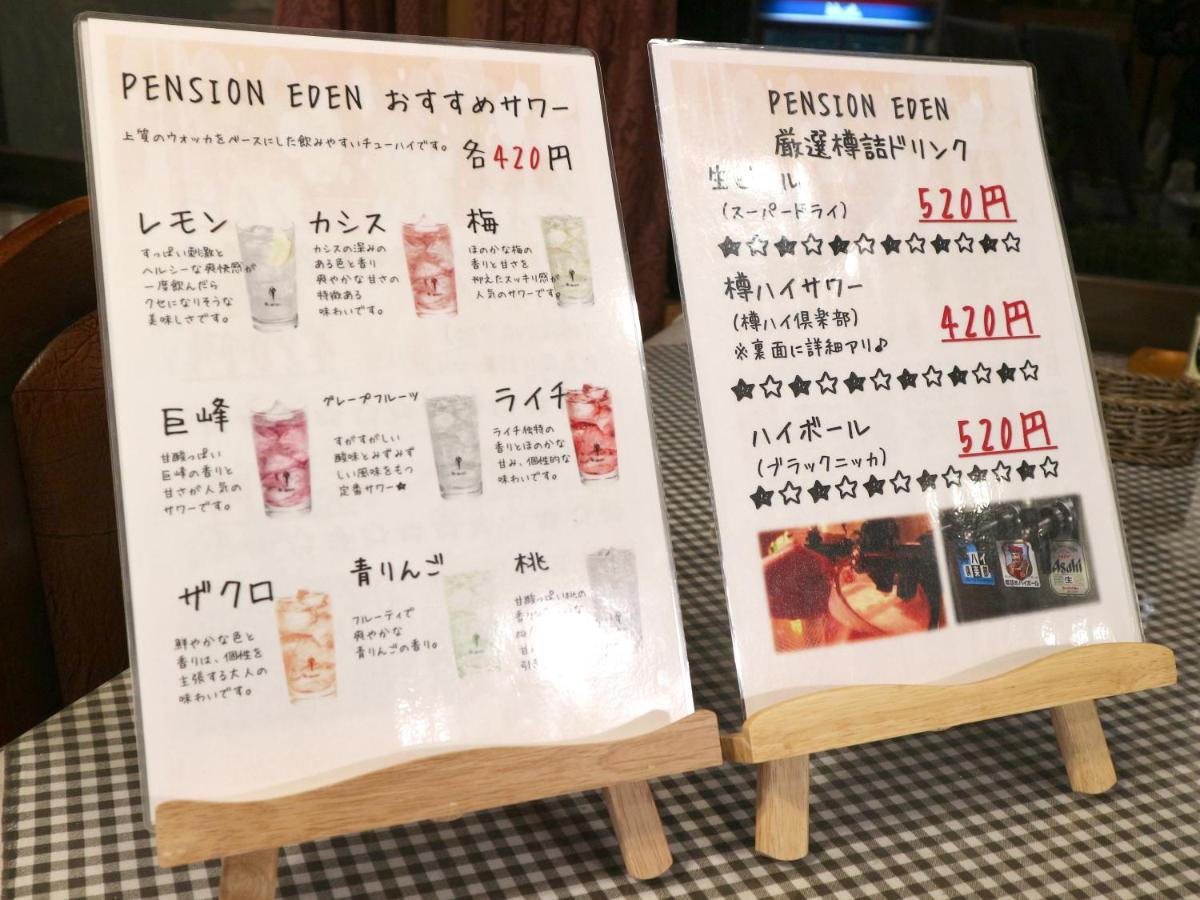 PENSION EDEN おすすめサワー
上質のウォッカをベースにした飲みやすいチューハイです。
各420円
レモン
すっぱい刺激と
ヘルシーな爽快感が
一度飲んだら
クセになりそうな
美味しさです。
カシス
カシスの深みの
ある色と香り
爽やかな甘さの
特徴ある
味わいです。
梅
ほのかな梅の
香りと甘さを
抑えたスッキリ感が
人気のサワーです。
巨峰
甘酸っぱい
巨峰の香りと
甘さが人気の
サワーです。
グレープフルーツ
すがすがしい
酸味とみずみず
しい風味をもつ
定番サワー★
ライチ
ライチ独特の
香りとほのかな
甘み、個性的な
味わいです。
ザクロ
鮮やかな色と
香りは、個性を
主張する大人の
味わいです。
青りんご
フルーティで
爽やかな
青りんごの香り。
桃
甘酸っぱい桃の
PENSION EDEN
厳選樽詰ドリンク
生ビール
(スーパードライ)
520円
★☆★☆★☆★☆★☆★☆
樽ハイサワー
(樽ハイ倶楽部)
420円
※裏面に詳細アリ♪
★☆★☆★☆★☆★☆★☆
ハイボール
520円
(ブラックニッカ)
★☆★☆★☆★☆★☆★☆
Asahi
生